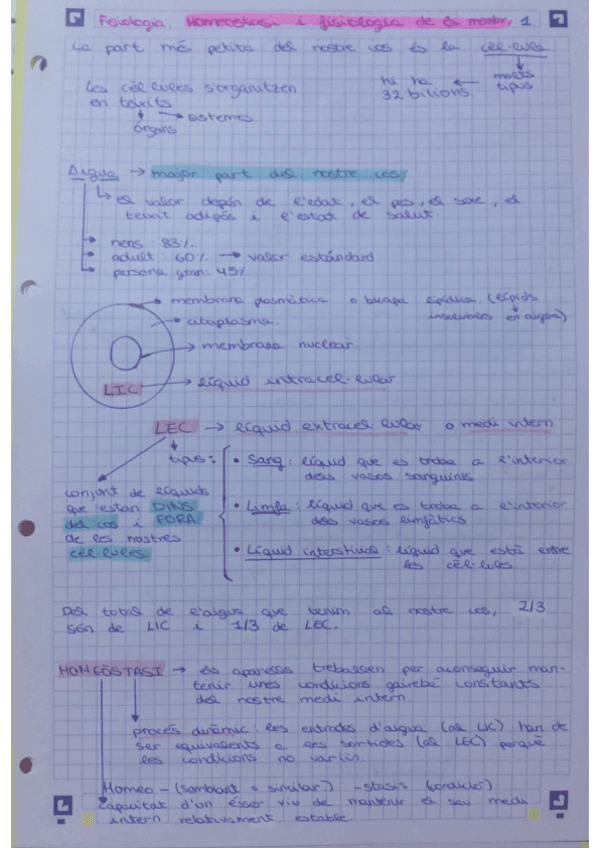 Fisiologia. Homeostasi i fisiologia de la membr. 1.
La part més petita del nostre cos és la cèl·lula
Les cèl·lules s'organitzen hi ha ← molts
en teixits 32 bilions. tipus
→ sistemes
órgans
Aigua → major part del nostre cos
↳ el valor depén de l'edat, el pes, el sexe, el
teixit adipós i l'estat de salut.
→ nens: 83%.
→ adult: 60% → valor estándard
→ persona gran: 45%
→ membrana plasmàtica o bicapa lipídica (lípids
→ citoplasma. insolubles en aigua)
→ membrana nuclear.
LIC → líquid intracel·lular.
LEC → líquid extracel·lular o medi intern
tipus:
• Sang: líquid que es troba a l'interior
dels vasos sanguinis
conjont de líquids
que estan DINS
del cos i FORA
de les nostres
cèl·lules
• Limfa: líquid que es troba a l'interior
dels vasos limfàtics
• Líquid intersticial: líquid que està entre
les cèl·lules
Del total de l'aigua que tenim al nostre cos, 2/3
són de LIC i 1/3 de LEC.
HOMEÒSTASI → els aparells treballen per aconseguir man-
tenir unes condicions gairebé constants
del nostre medi intern
procés dinàmic: les entrades d'aigua (al LIC) han de
ser equivalents a les sortides (al LEC) perquè
les condicions no variin.
Homeo - (semblant o similar) -stasis (condició)
Capacitat d'un ésser viu de mantenir el seu medi
intern relativament estable.